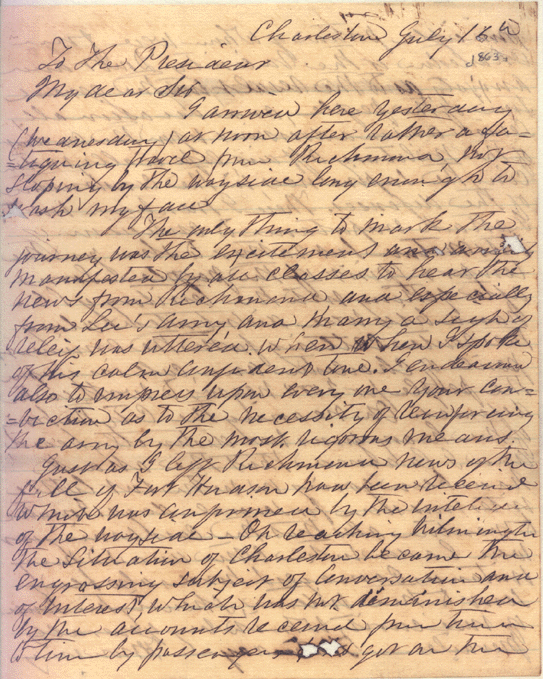 Charleston July 16th
1863
To The President
My dear Sir
I arrived here yesterday
(Wednesday) at noon after rather a fa-
-tiguing travel from Richmond not
stoping by the wayside long enough to
wash my face
The only thing to mark the
journey was the excitement and anxiety
manifested by all classes to hear the
news from Richmond and especially
from Lee's Army and many a sigh of
relief was uttered when I spoke
of his calm confident tone. I endeavored
also to impress upon every one your con-
-viction as to the necessity of reinforcing
the army by the most vigorous means.
Just as I left Richmond news of the
fall of Fort Hudson had been received
which was confirmed by the intelligence
of the wayside - On reaching Wilmington
the situation of Charleston became the
engrossing subject of conversation and
of interest, which was not diminished
by the accounts received from time
to time by passengers got on the